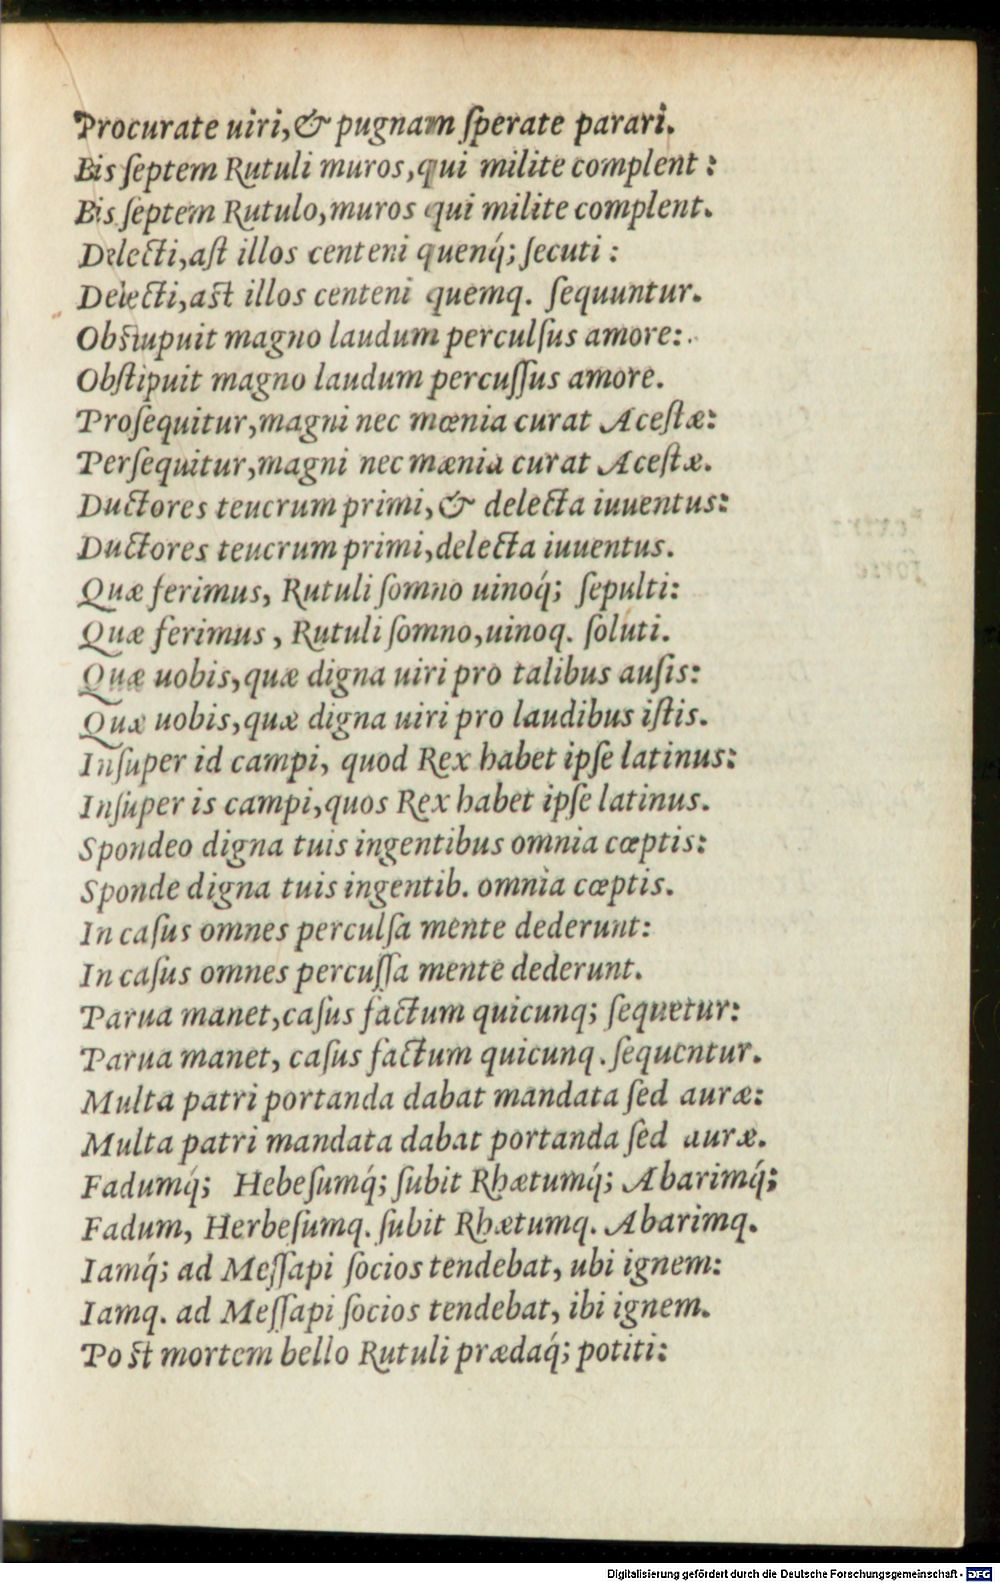 Procurate uiri,& pugnam ſperate parari.
Bis ſeptem Rutuli muros,qui milite complent :
Bis ſeptem Rutulo,muros qui milite complent.
Delecti,aſt illos centeni quenq́; ſecuti :
Delecti,aſt illos centeni quemq. ſequuntur.
Obſtupuit magno laudum perculſus amore:.
Obſtipuit magno laudum percuſſus amore.
Proſequitur,magni nec mœnia curat Aceſtæ:
Perſequitur,magni nec mænia curat Aceſtæ.
Ductores teucrum primi,& delecta iuuentus:
Ductores teucrum primi,delecta iuuentus.
Quæ ferimus, Rutuli ſomno uinoq́; ſepulti:
Quæ ferimus , Rutuli ſomno,uinoq. ſoluti.
Quæ uobis,quæ digna uiri pro talibus auſis:
Quæ uobis,quæ digna uiri pro laudibus iſtis.
Inſuper id campi, quod Rex habet ipſe latinus:
Inſuper is campi,quos Rex habet ipſe latinus.
Spondeo digna tuis ingentibus omnia cœptis:
Sponde digna tuis ingentib. omnia cœptis.
In caſus omnes perculſa mente dederunt:
In caſus omnes percuſſa mente dederunt.
Parua manet,caſus factum quicunq; ſequetur:
Parua manet, caſus factum quicunq. ſequentur.
Multa patri portanda dabat mandata ſed auræ:
Multa patri mandata dabat portanda ſed auræ.
Fadumq́; Hebeſumq́; ſubit Rhætumq́; Abarimq́;
Fadum, Herbeſumq. ſubit Rhætumq. Abarimq.
Iamq́; ad Meſſapi ſocios tendebat, ubi ignem:
Iamq. ad Meſſapi ſocios tendebat, ibi ignem.
Poſt mortem bello Rutuli prædaq́; potiti:
Digitalisierung gefördert durch die Deutsche Forschungsgemeinschaft - DFG